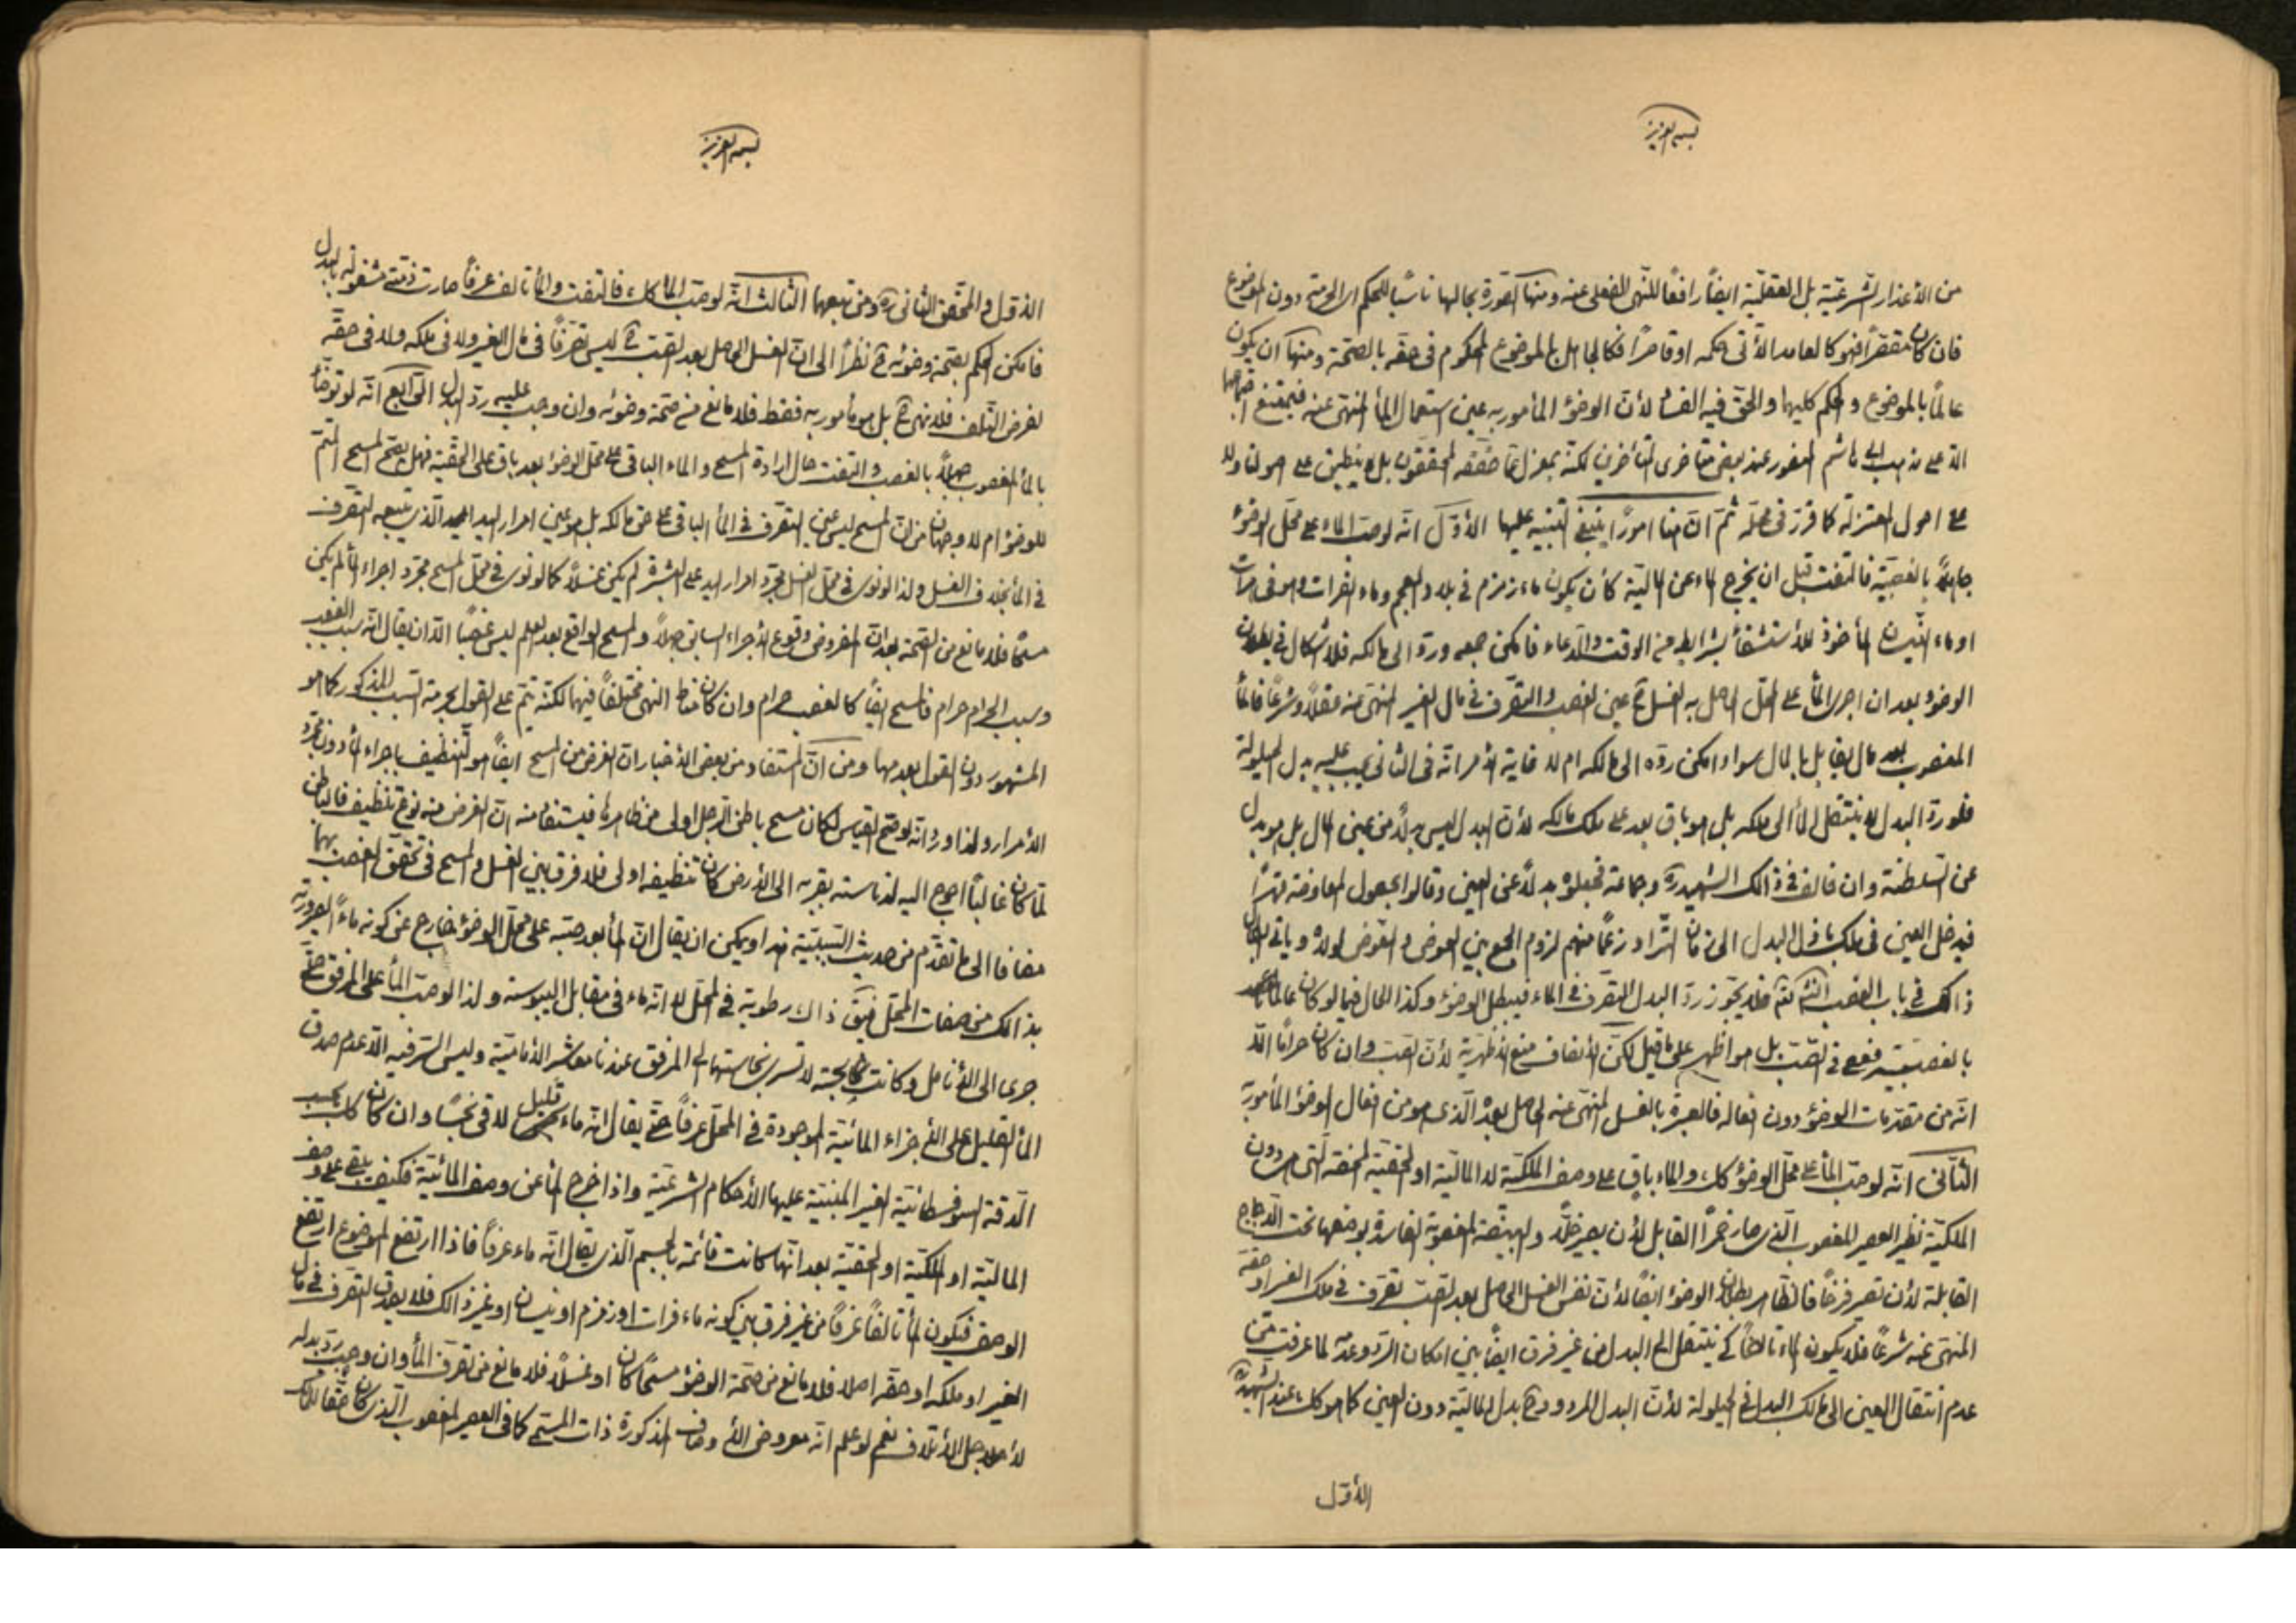 بسمه العزيز
من الأعذار الشرعيّة بل العقليّة ايضاً رافعاً للنّهى الفعلى عنه ومنها الصّورة بحالها ناسياً للحكم اى الحرمة دون الموضوع
فان كان مقصّراً فهو كالعامد لما يأتى حكمه او قاصراً فكالجاهل بالموضوع المحكوم فى حقّه بالصحّة ومنها ان يكون
عالماً بالموضوع والحكم كليهما والحق فيه الفساد لأنّ الوضوء المأمور به عين استعمال الماء المنهىّ عنه فيمتنع اجتماعهما
الّا على مذهب ابى هاشم المغفور عند بعض متأخرى المتأخرين لكنّه بمعزل عمّا حقّقه المحققون بل لا ينطبق على اصولنا ولا
على اصول المعتزلة كما قرّر فى محلّه ثمّ انّ هنا اموراً ينبغى التنبيه عليها الأوّل انّه لو صبّ الماء على محلّ الوضوء
جاهلاً بالغصبيّة فالتفت قبل ان يخرج الماء عن الماليّة كأن يكون ماء زمزم فى بلاد العجم وماء الفرات وهو فى
او ماء النيسان المأخوذ للأستشفاء بشرايطه من الوقت والدّعاء فامكن جمعه وردّه الى مالكه فلا اشكال فى بطلان
الوضوء بعد ان اجرى الماء على المحلّ الحاصل به الغسل ح عين الغصب والتصّرف فى مال الغير المنهىّ عنه عقلاً وشرعاً فالماء
المغصوب بعد مال يقابل بالمال سواء امكن ردّه الى مالكه ام لا غاية الأمر انّه فى الثانى يجب عليه بدل الحيلولة
فلو ردّ البدل لا ينتقل الماء الى ملكه بل هو باق بعد على ملك مالكه لأنّ البدل ليس بدلاً من عين المال بل هو بدل
عن السّلطنة وان خالف فى ذالك الشهيد ره وجماعة فجعلوه بدلاً عن العين وقالوا بحصول المعاوضة قهراً
فيدخل العين فى ملك باذل البدل الى زمان التّراد زعماً منهم لزوم الجمع بين العوض والمعوّض لولاه ويأتى بطلان
ذالك فى باب الغصب انشاء الله فلا يجوّز ردّ البدل التصّرف فى الماء فيبطل الوضوء وكذا الحال فيما لو كان عالماً
بالغصبيّة فعصى فى الصّبّ بل هو اظهر على ما قيل لكنّ الأنصاف منع الأظهريّة لأنّ الصّبّ وان كان حراماً الّا
انّه من مقدّمات الوضوء دون افعاله فالعبرة بالغسل المنهىّ عنه الحاصل بعده الّذى هو من افعال الوضوء المأمور به
الثّانى انّه لو صبّ الماء على محلّ الوضوء كك والماء باق على وصف الملكيّة لا الماليّة او الحقيّة المحضة الّتى هى دون
الملكيّة نظير العصير المغصوب الّذى صار خمراً القابل لأن يصير خلّاً والبيضة المغصوبة الفاسدة لو وضعها تحت الدّجاج
القابلة لأن تصير فرخاً فالظاهر بطلان الوضوء ايضاً لأنّ نفس الغسل الحاصل بعد الصّبّ تصّرف فى ملك الغير او حقّه
المنهىّ عنه شرعاً فلا يكون الماء تالفاً كى ينتقل الى البدل من غير فرق ايضاً بين امكان الرّد وعدمه لما عرفت من
عدم انتقال العين الى مالك البدل فى الحيلولة لأنّ البدل المردود ح بدل الماليّة دون العين كما هو كك عند الشهيد ره
الأوّل
بسمه العزيز
الأوّل والمحقّق الثانى ره ومن تبعهما الثالث انّه لو صبّ الماء كك فالتفت والماء تالف عرفاً صارت ذمّته مشغولة بالبدل
فامكن الحكم بصحّة وضوئه ح نظراً الى انّ الغسل الحاصل بعد الصّبّ ح ليس تصرّفاً فى مال الغير ولا فى ملكه ولا فى حقّه
لفرض التّلف فلا نهى ح بل هو مأمور به فقط فلا مانع من صحّة وضوئه وان وجب عليه ردّ البدل الرّابع انّه لو توضّأ
بالماء المغصوب جهلاً بالغصب والتفت حال ارادة المسح والماء الباقى على محلّ الوضوء بعد باق على الحقيّة فهل يصحّ المسح المتمّم
للوضوء ام لا وجهان من انّ المسح ليس عين التصّرف فى الماء الباقى على حق مالكه بل هو عين امرار اليد الّذى يتبعه التصّرف
فى الماء بخلاف الغسل ولذا لو نوى فى محلّ الغسل مجرّد امرار اليد على البشرة لم يكن غسلاً كما لو نوى فى محلّ المسح مجرّد اجراء الماء لم يكن
مسحاً فلا مانع من الصّحة بعد انّ المفروض وقوع الأجراء السابق جهلاً والمسح الواقع بعد العلم ليس غصباً الّا ان يقال انّه سبب الغصب
وسبب الحرام حرام فالمسح ايضاً كالغصب حرام وان كان مناط النهى مختلفاً فيهما لكنّه يتمّ على القول بحرمة السّبب المذكور كما هو
المشهور دون القول بعدمها ومن انّ المستفاد من بعض الأخبار انّ الغرض من المسح ايضاً هو التّنظيف باجراء الماء دون مجرّد
الأمرار ولذا ورد انّه لو صحّ القياس لكان مسح باطن الرّجل اولى من ظاهرها فيستفاد منه انّ الغرض منه نوع تنظيف فالباطن
لمّا كان غالباً احوج اليه لدناسته بقربه الى الأرض كان تنظيفه اولى فلا فرق بين الغسل والمسح فى تحقّق الغصب بهما
مضافاً الى ما تقدّم من حديث السّببيّة هذا ويمكن ان يقال انّ الماء بعد صبّه على محلّ الوضوء خارج عن كونه ماءً لصيرورته
بذالك من صفات المحلّ فيبقى ذاك رطوبة فى المحلّ لا انّه ماء فى مقابل اليبوسة ولذا لو صبّ الماء على المرفق حتّى
جرى الى الأنامل وكانت نجسة لا تسرى نجاستها الى المرفق عندنا معاشر الأماميّة وليس السّر فيه الّا عدم صدق
الماء القليل على الأجزاء المائيّة الموجودة فى المحلّ عرفاً حتّى يقال انّه ماء قليل لاقى نجساً وان كان كك بحسب
الدّقة السوفسطائيّة الغير المبنيّة عليها الأحكام الشرعيّة واذا خرج الماء عن وصف المائيّة فكيف يبقى على وصف
الماليّة او الملكيّة او الحقيّة بعد انّها كانت قائمة بالجسم الّذى يقال انّه ماء عرفاً فاذا ارتفع الموضوع ارتفع
الوصف فيكون الماء تالفاً عرفاً من غير فرق بين كونه ماء فرات او زمزم او نيسان او غير ذالك فلا يصدق التصّرف فى مال
الغير او ملكه او حقّه اصلا فلا مانع من صحّة الوضوء مسحاً كان او غسلاً فلا مانع من تصرّف الماء وان وجب ردّ بدله
لأجل الأتلاف نعم لو علم انّه معروض الأوصاف المذكورة ذات المسحى كما فى العصير المغصوب الّذى كان حقّا للمالك